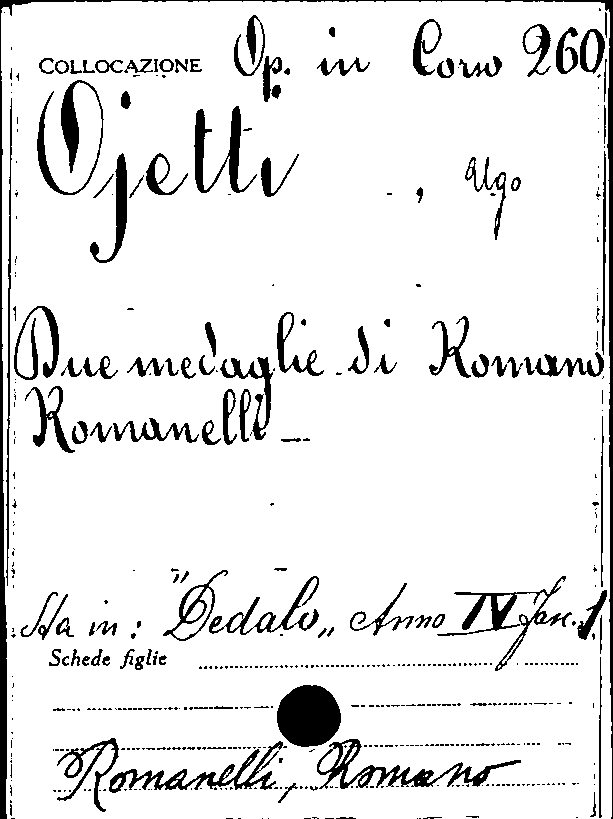 COLLOCAZIONE Op. in Corso 260
Ojetti, Ugo
Due medaglie di Romano
Romanelli_
Sta in: "Dedalo„ Anno IV Fasc. 1
Schede figlie
Romanelli, Romano